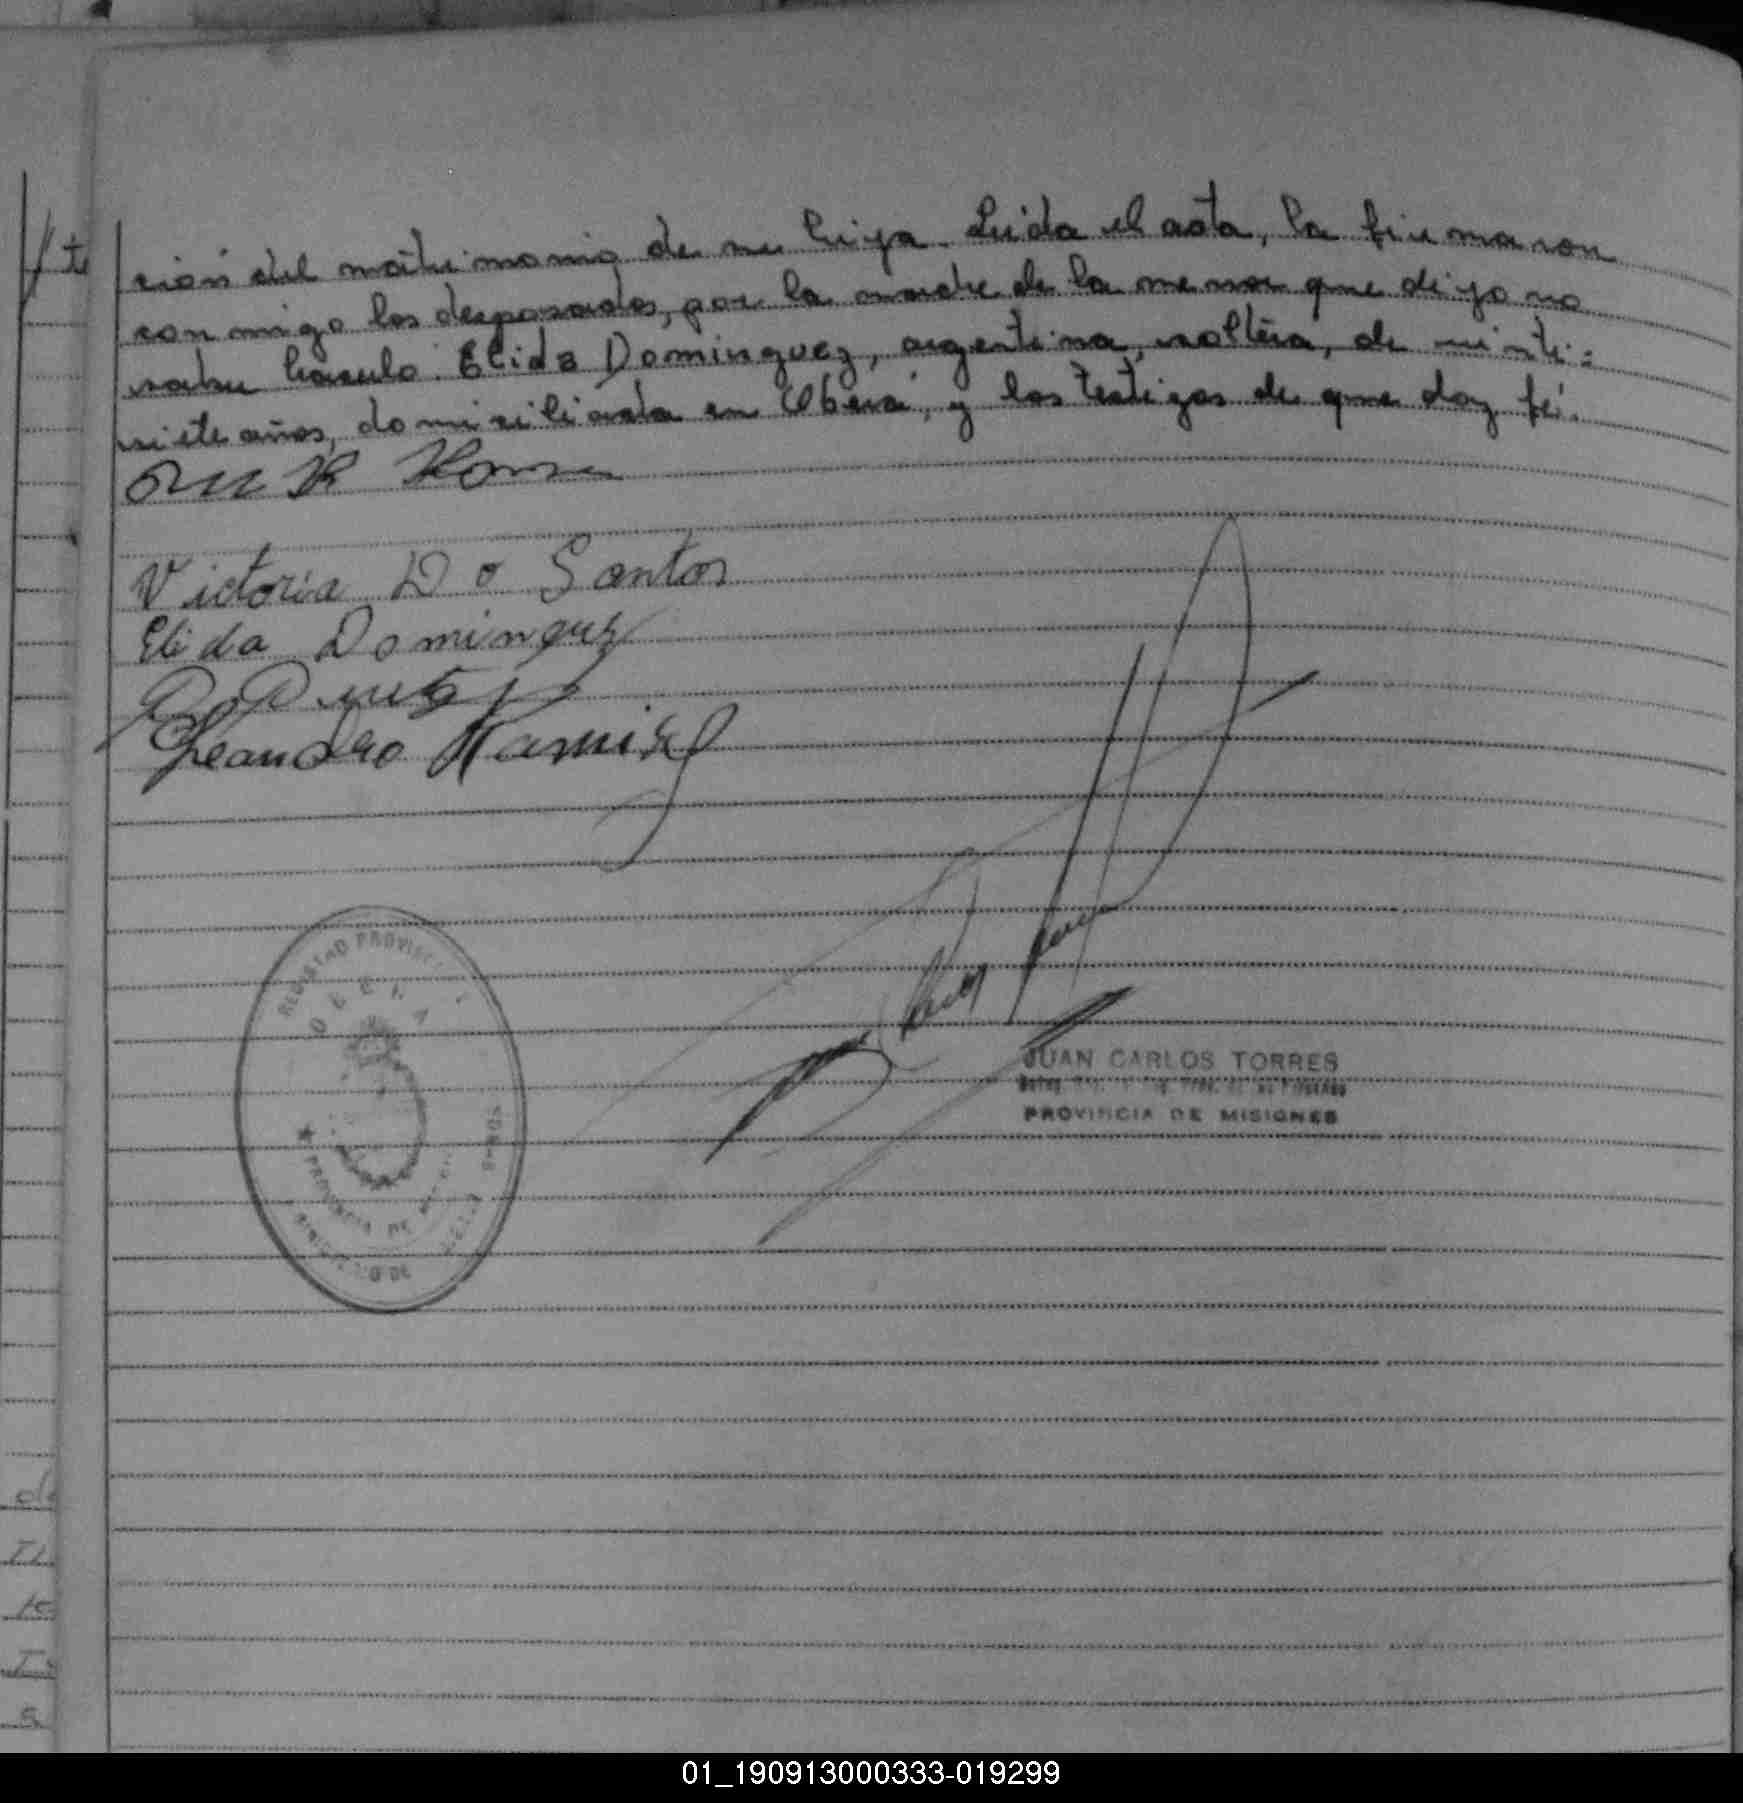 ción del matrimonio de su hija. Leída el acta, la firmaron
conmigo los desposados, por la madre de la menor que dijo no
saber hacerlo: Elida Dominguez, argentina, soltera, de veinti=
siete años, domiciliada en Oberá, y los testigos de que doy fé.
Victoria Do Santos
Elida Dominguez
Leandro Ramirez
REGISTRO PROVINCIAL
OBERA
PROVINCIA DE
MINISTERIO DE
JUAN CARLOS TORRES
PROVINCIA DE MISIONES
01_190913000333-019299